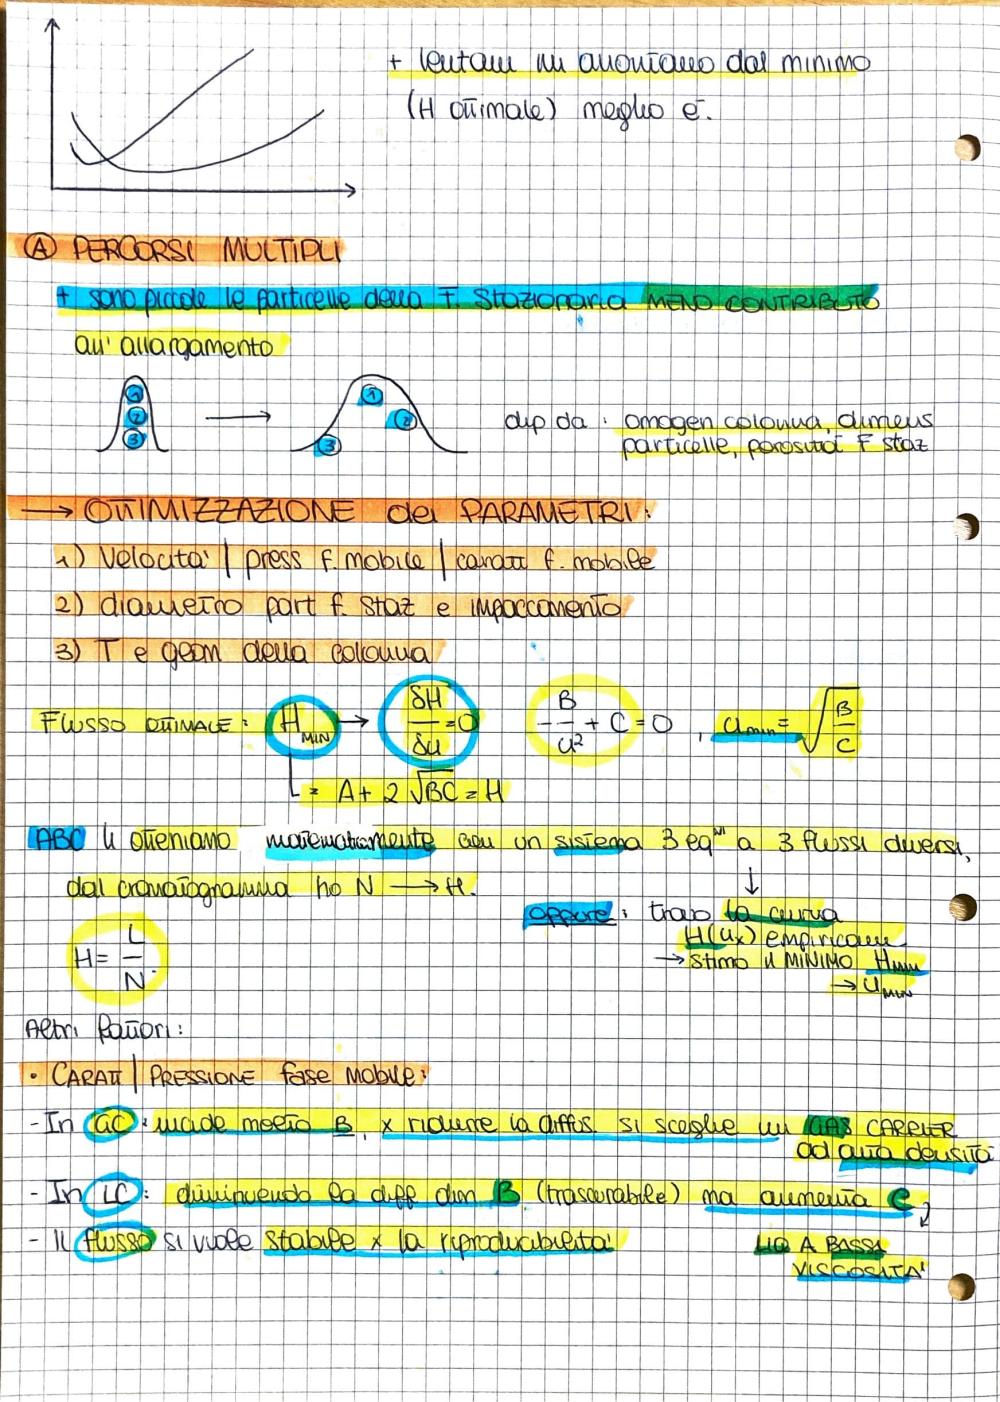 + lentam mi allontano dal minimo
(H ottimale) meglio è.
Ⓐ PERCORSI MULTIPLI
+ sono piccole le particelle della F. Stazionaria MENO CONTRIBUTO
all' allargamento
① ② ③ → ① ② ③
dip da : omogen colonna, dimens
particelle, porosità F staz
→ OTTIMIZZAZIONE dei PARAMETRI:
1) Velocità | press f. mobile | caratt f. mobile
2) diametro part f. staz e impaccamento
3) T e geom della colonna
FLUSSO OTTIMALE: H MIN → δH/δu = 0 - B/u² + C = 0, umin = √B/C
= A + 2 √BC = H
ABC li otteniamo matematicamente con un sistema 3 eqni a 3 flussi diversi,
dal cromatogramma ho N → H.
oppure: traccio la curva
H(ux) empiricam
→ stimo il MINIMO Hmin
→ UMIN
H = L/N.
Altri fattori:
• CARATT | PRESSIONE fase MOBILE:
- In GC: incide molto B, x ridurre la diffus. si sceglie un GAS CARRIER
ad alta densità
- In LC: diminuendo la diff dim B (trascurabile) ma aumenta C
- Il flusso si vuole stabile x la riproducibilità
LIQ A BASSA
VISCOSITA'